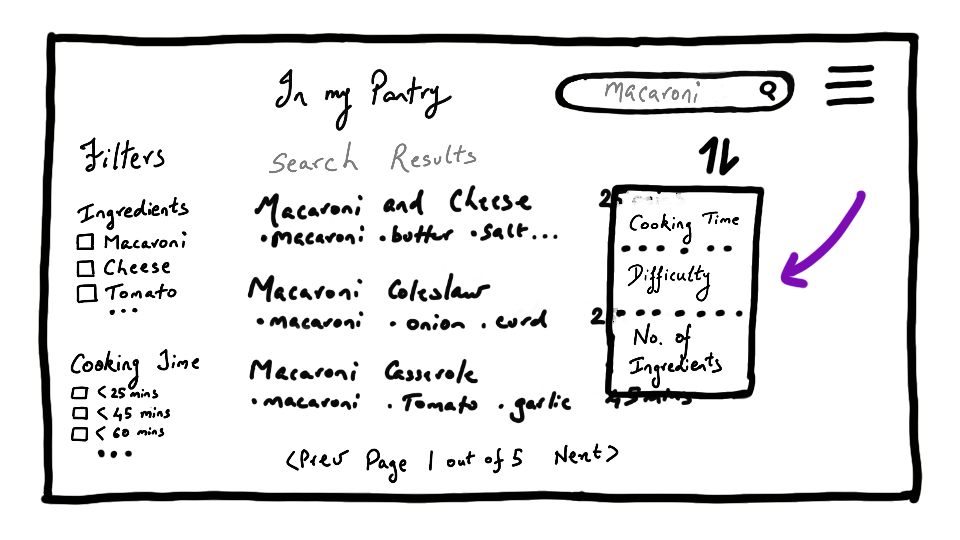 In my Pantry
Macaroni
Filters
Ingredients
Macaroni
Cheese
Tomato
...
Cooking Time
< 25 mins
< 45 mins
< 60 mins
...
Search Results
Macaroni and Cheese
• macaroni • butter • salt...
Macaroni Coleslaw
• macaroni • onion • curd
Macaroni Casserole
• macaroni • Tomato • garlic 45 mins
Cooking Time
Difficulty
No. of
Ingredients
<Prev Page 1 out of 5 Next>